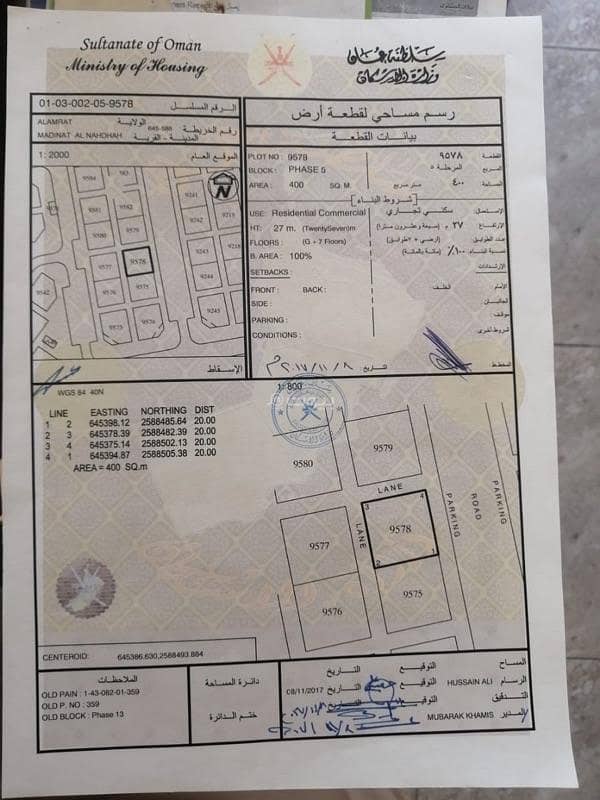 Sultanate of Oman
Ministry of Housing
سلطنة عمان
وزارة الإسكان
01-03-002-05-9578 الرقم المسلسل
ALAMRAT الولاية
645-588 رقم الخريطة
MADINAT AL NAHDHAH المدينة - القرية
1: 2000 الموقع العام
9584 583
9581 9582
9580 9579
9577 9578
9575
9576
9573
9542
9241
9242 9219
9243 9218
9244
9245
N
الإسقاط
رسم مساحي لقطعة أرض
بيانات القطعة
PLOT NO : 9578 ٩٥٧٨ القطعة
BLOCK : PHASE 5 المرحلة ٥ المربع
AREA : 400 SQ. M ٤٠٠ متر مربع المساحة
[شروط البناء]
USE: Residential Commercial سكني تجاري الإستعمال:
HT: 27 m. (TwentySeven)m ٢٧ م (سبعة وعشرون مترا) الإرتفاع:
FLOORS : (G + 7 Floors) (أرضي + ٧طوابق) عدد الطوابق:
B. AREA : 100% ١٠٠٪ (مائة بالمائة) نسبة البناء:
SETBACKS : الإرتدادات
FRONT : BACK : الخلف: الإمام:
SIDE : الجانبان:
PARKING : موقف:
CONDITIONS : شروط اخرى
المخطط تاريخ ٢٠١٧/١١/٨م
WGS 84 40N
1: 800
LINE EASTING NORTHING DIST
1 2 645398.12 2588485.64 20.00
2 3 645378.39 2588482.39 20.00
3 4 645375.14 2588502.13 20.00
4 1 645394.87 2588505.38 20.00
AREA = 400 SQ.m
9580
9579
LANE
3 4
9578
2 1
LANE
9577
9576
9575
PARKING
ROAD
PARKING
CENTEROID: 645386.630,2588493.884
الملاحظات
OLD PAIN : 1-43-082-01-359
OLD P. NO : 359
OLD BLOCK : Phase 13
دائرة المساحة
ختم الدائرة
المساح التوقيع التاريخ
الرسام HUSSAIN ALI التوقيع التاريخ 08/11/2017
التدقيق التوقيع التاريخ
المدير MUBARAK KHAMIS